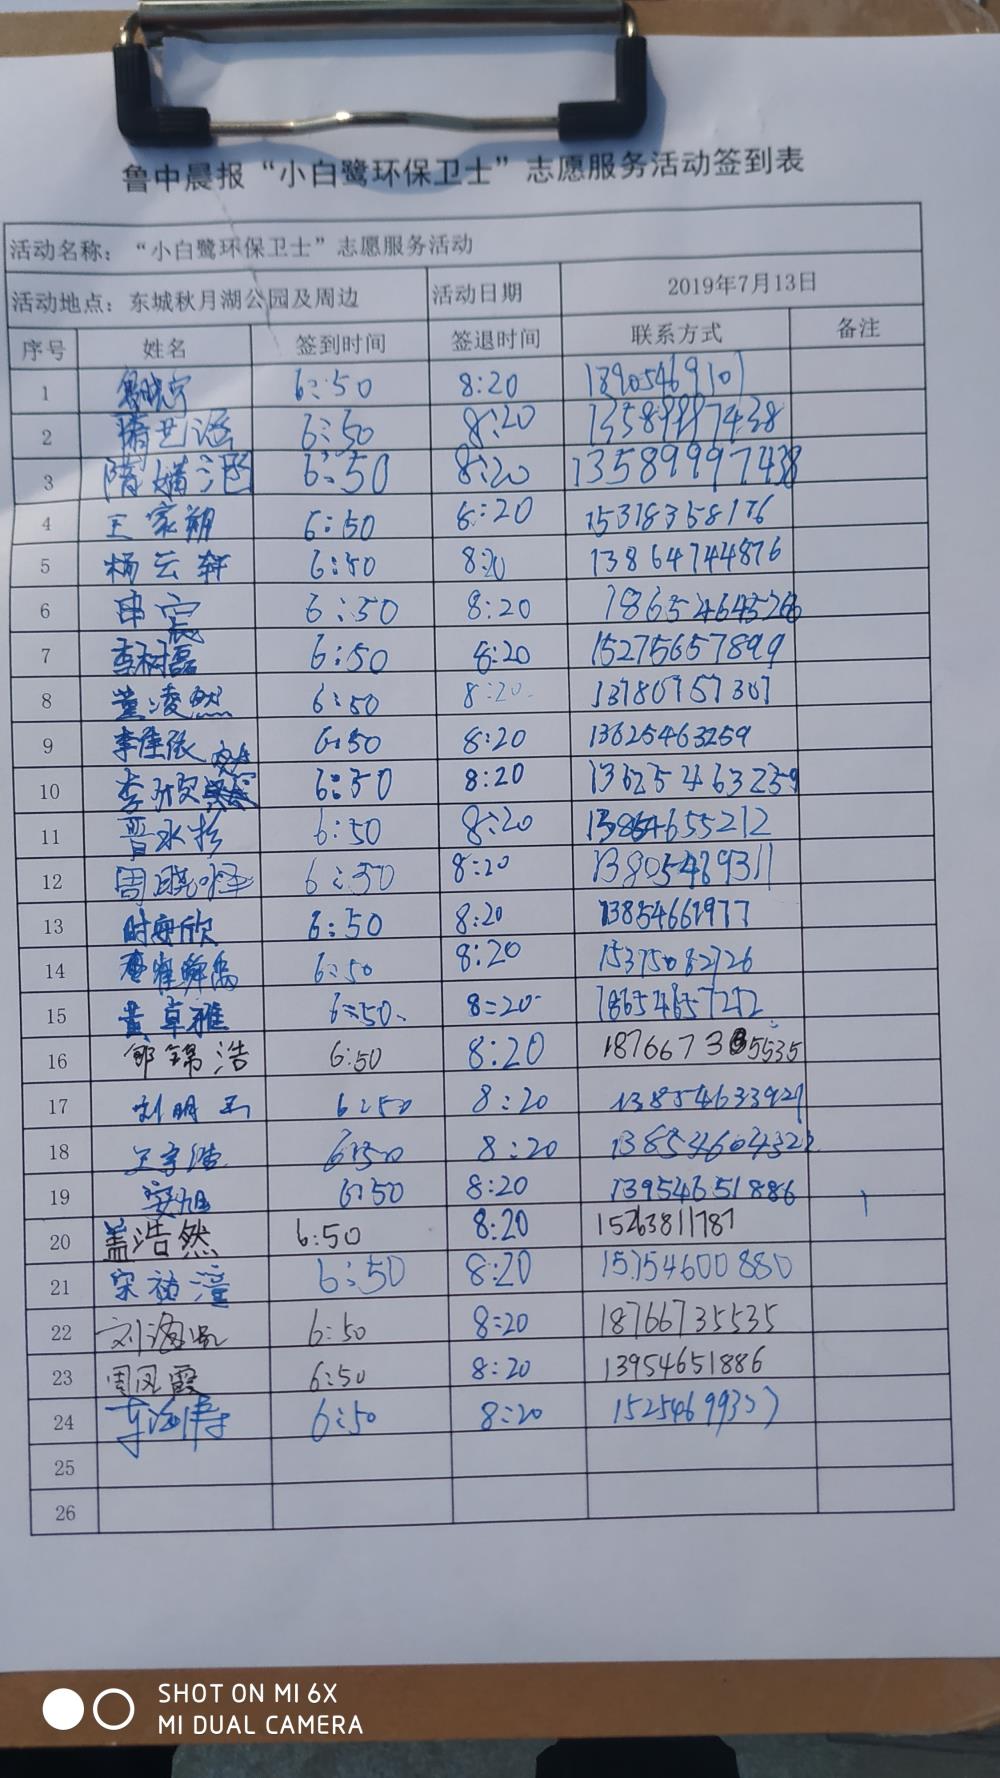 鲁中晨报“小白鹭环保卫士”志愿服务活动签到表
活动名称：“小白鹭环保卫士”志愿服务活动
活动地点：东城秋月湖公园及周边 活动日期 2019年7月13日
序号 姓名 签到时间 签退时间 联系方式 备注
1 6:50 8:20 18905469101
2 6:50 8:20
3 6:50 8:20 13589997438
4 王家朔 6:50 8:20 15318358176
5 杨云轩 6:50 8:20 13864744876
6 6:50 8:20
7 李树磊 6:50 8:20 15275657899
8 董凌然 6:50 8:20
9 6:50 8:20 13625463259
10 李欣 6:50 8:20 13625463259
11 晋水杉 6:50 8:20
12 6:50 8:20
13 时安欣 6:50 8:20 13854661977
14 6:50 8:20
15 黄卓雅 6:50 8:20 18654657272
16 邹锦浩 6:50 8:20
17 刘明玉 6:50 8:20
18 王宇浩 6:50 8:20
19 安旭 6:50 8:20 13954651886
20 盖浩然 6:50 8:20 15263811787
21 宋祐潼 6:50 8:20 15154600880
22 6:50 8:20 18766735535
23 周凤霞 6:50 8:20 13954651886
24 6:50 8:20
25
26
SHOT ON MI 6X
MI DUAL CAMERA